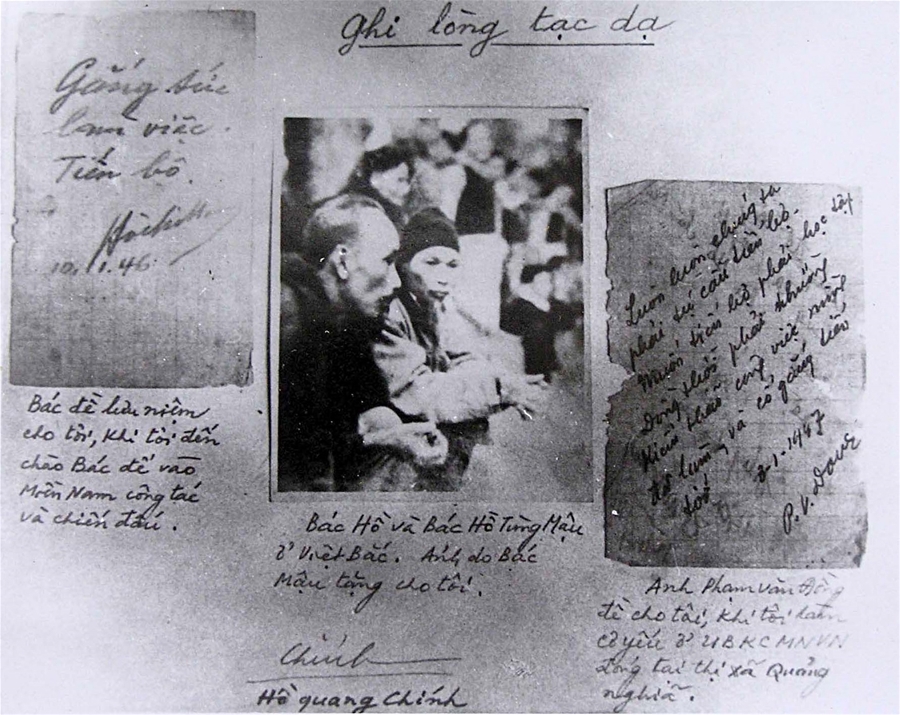 Ghi lòng tạc dạ
Gắng sức
làm việc.
Tiến bộ.
HồchíM
10.1.46.
Bác đề lưu niệm
cho tôi, khi tôi đến
chào Bác để vào
Miền Nam công tác
và chiến đấu.
Bác Hồ và Bác Hồ Tùng Mậu
ở Việt Bắc. Ảnh do Bác
Mậu tặng cho tôi.
Chính
Hồ quang Chính
Luôn luôn chúng ta
phải tự cầu tiến bộ.
Muốn tiến bộ phải học tập
Đồng thời phải thường
kiểm thảo công việc mình
đã làm, và cố gắng tiến
tới
2-1-1947
P.V. Dong
Anh Phạm văn Đồng
đề cho tôi, khi tôi làm
cơ yếu ở UBKCMNVN
đóng tại thị xã Quảng
nghĩa.